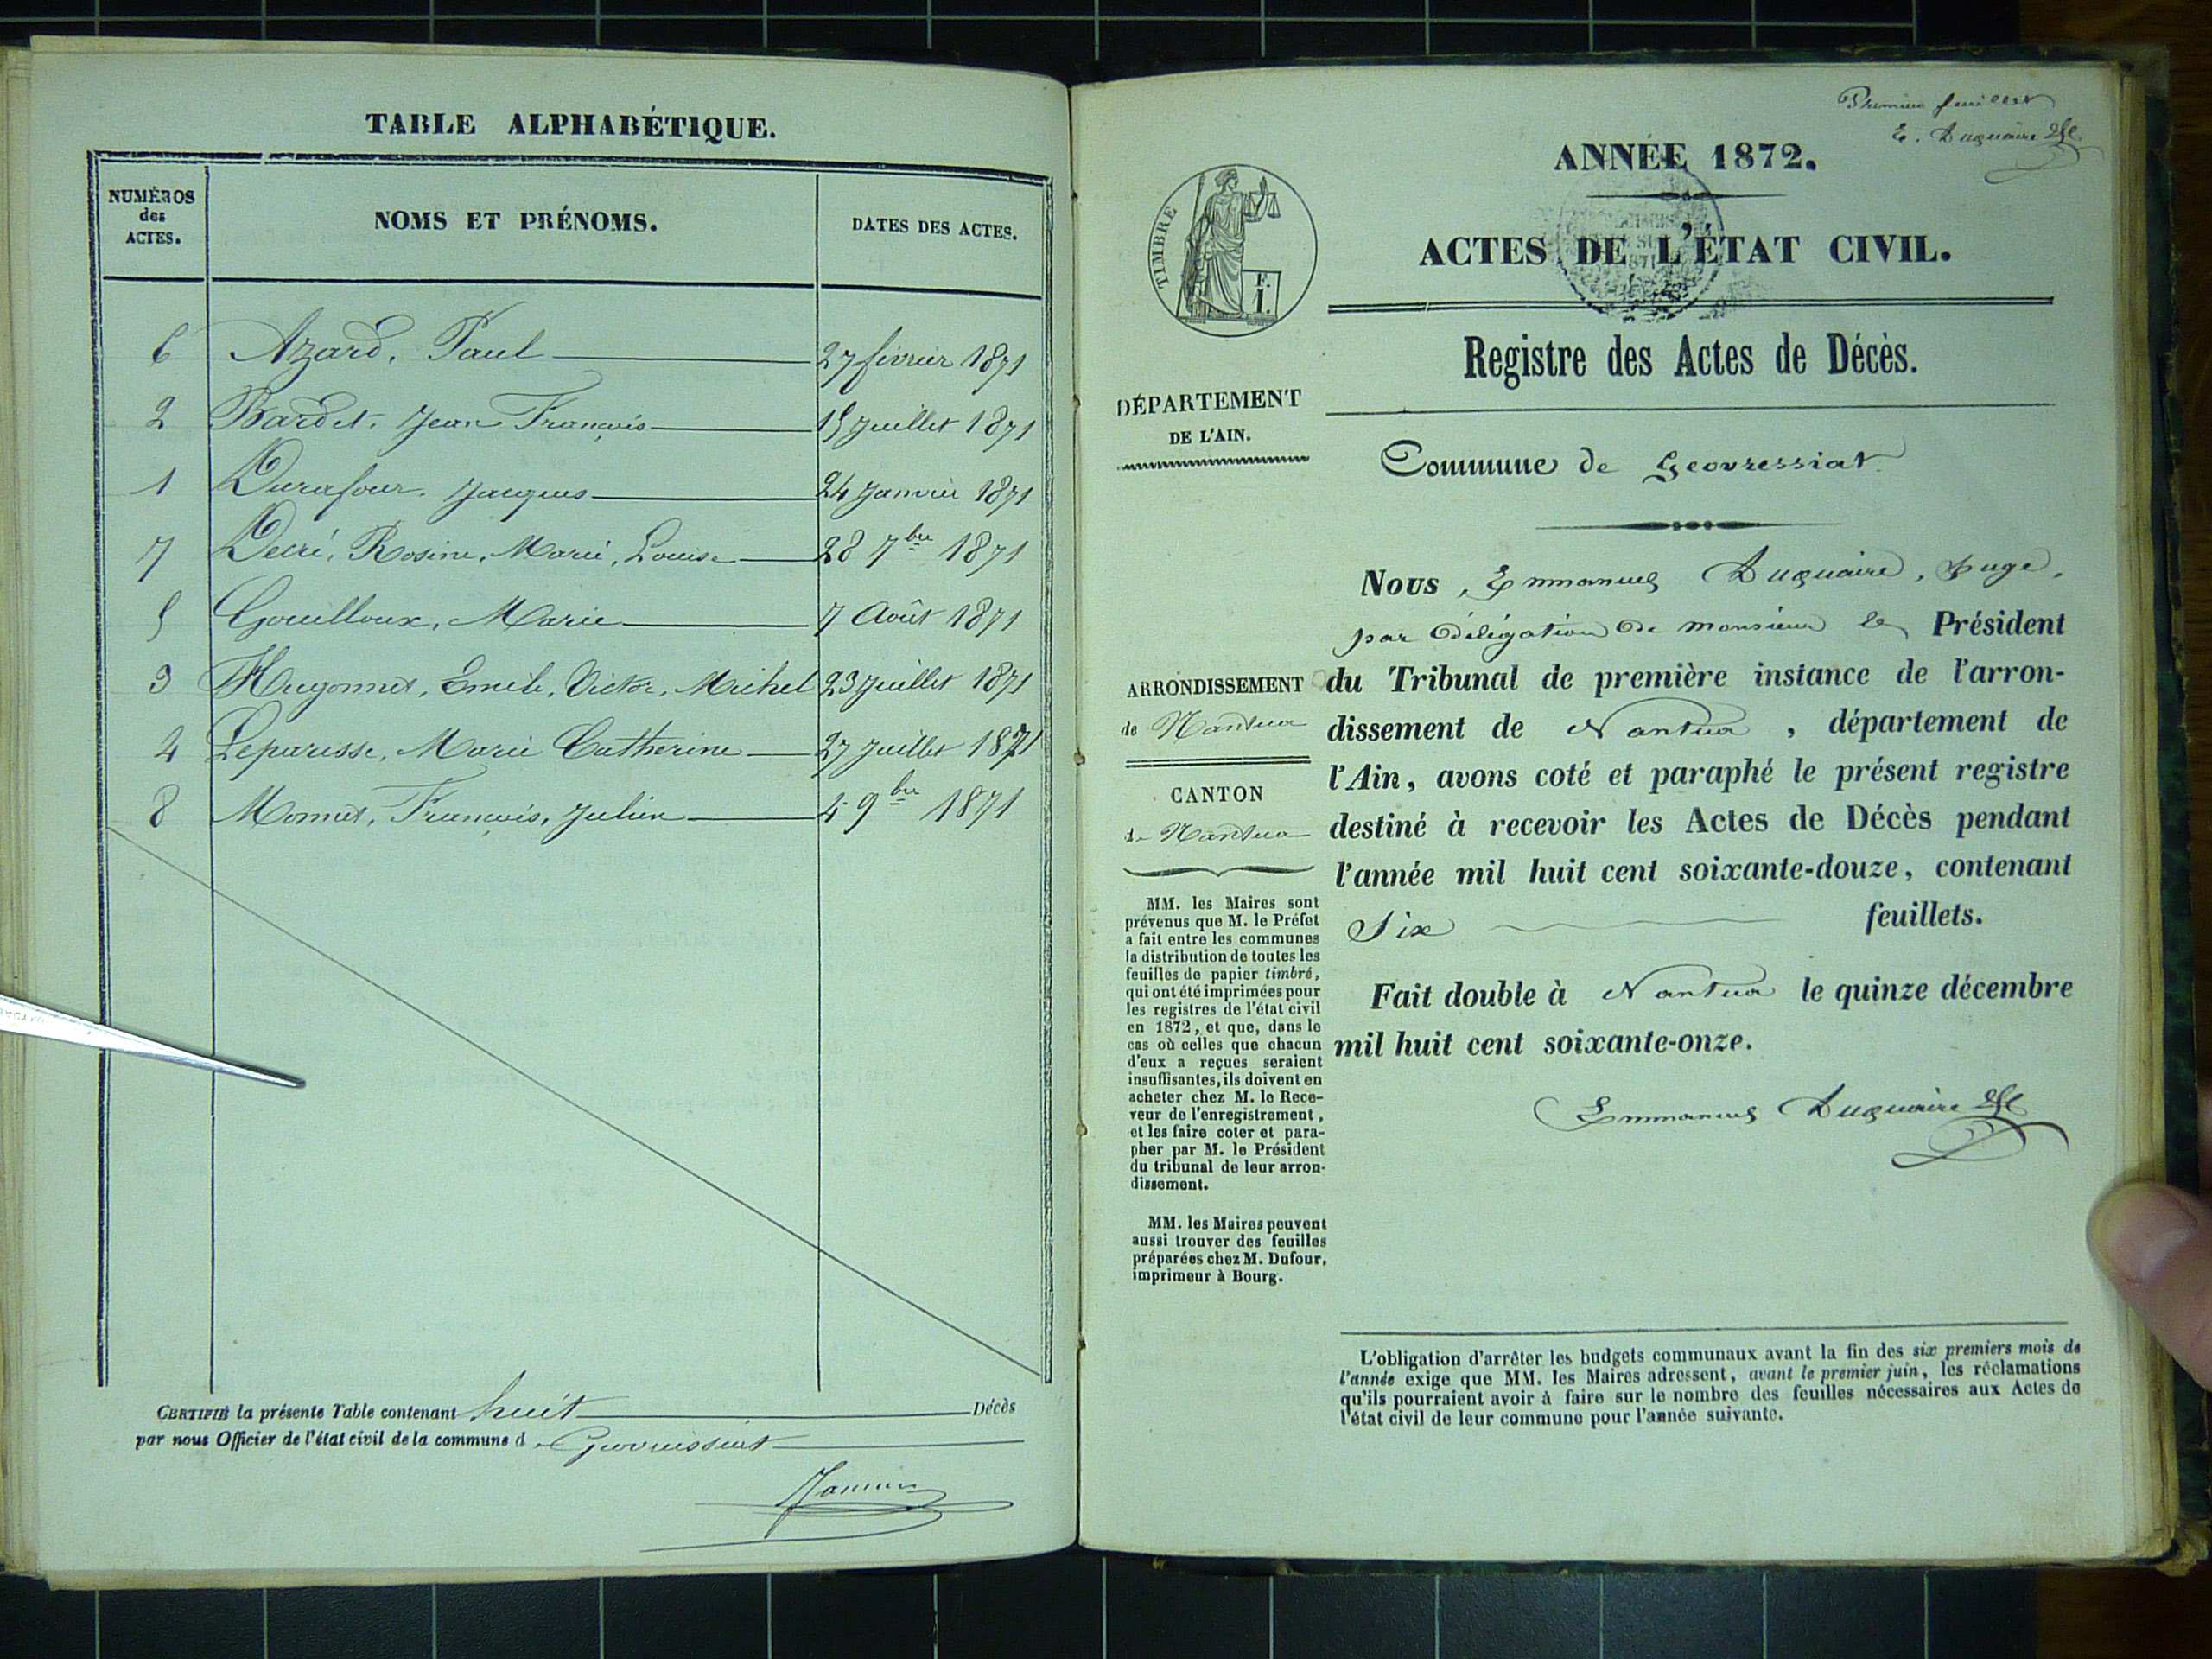 TABLE ALPHABÉTIQUE.
NUMÉROS
des
ACTES.
NOMS ET PRÉNOMS.
DATES DES ACTES.
6 Azard, Paul 27 février 1871
2 Bardet, Jean François 15 Juillet 1871
1 Durafour, Jacques 24 Janvier 1871
7 Decré, Rosine, Marie, Louise 28 7bre 1871
5 Gouilloux, Marie 7 Août 1871
3 Hugonnet, Emile, Victor, Michel 23 Juillet 1871
4 Leparisse, Marie Catherine 27 Juillet 1871
8 Monnet, François, Julien 4 9bre 1871
CERTIFIÉ la présente Table contenant huit Décès
par nous Officier de l'état civil de la commune d
Premier feuillet
E. Duquaire
ANNÉE 1872.
ACTES DE L'ÉTAT CIVIL.
TIMBRE
F.
1.
Registre des Actes de Décès.
DÉPARTEMENT
DE L'AIN.
Commune de Geovressiat
Nous, Emmanuel Duquaire, Juge,
par délégation de monsieur le Président
du Tribunal de première instance de l'arron-
dissement de Nantua, département de
l'Ain, avons coté et paraphé le présent registre
destiné à recevoir les Actes de Décès pendant
l'année mil huit cent soixante-douze, contenant
Six feuillets.
Fait double à Nantua le quinze décembre
mil huit cent soixante-onze.
Emmanuel Duquaire
ARRONDISSEMENT
de Nantua
CANTON
de Nantua
MM. les Maires sont
prévenus que M. le Préfet
a fait entre les communes
la distribution de toutes les
feuilles de papier timbré,
qui ont été imprimées pour
les registres de l'état civil
en 1872, et que, dans le
cas où celles que chacun
d'eux a reçues seraient
insuffisantes, ils doivent en
acheter chez M. le Rece-
veur de l'enregistrement,
et les faire coter et para-
pher par M. le Président
du tribunal de leur arron-
dissement.
MM. les Maires peuvent
aussi trouver des feuilles
préparées chez M. Dufour,
imprimeur à Bourg.
L'obligation d'arrêter les budgets communaux avant la fin des six premiers mois de
l'année exige que MM. les Maires adressent, avant le premier juin, les réclamations
qu'ils pourraient avoir à faire sur le nombre des feuilles nécessaires aux Actes de
l'état civil de leur commune pour l'année suivante.